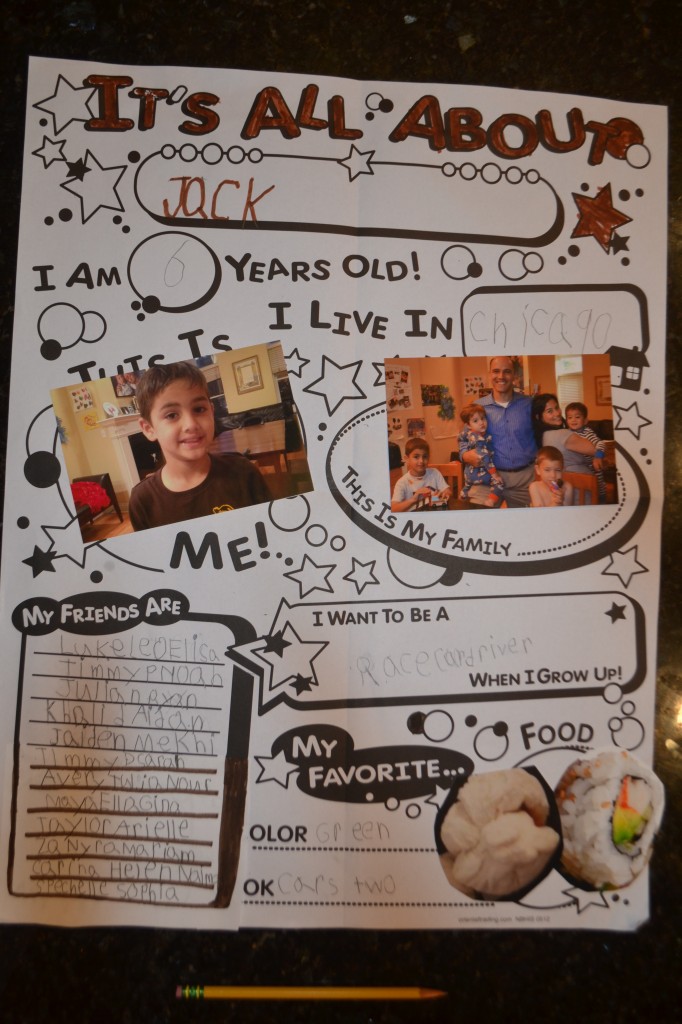 IT'S ALL ABOUT
JACK
I AM 6 YEARS OLD!
I LIVE IN Chicago
THIS IS
ME!
THIS IS MY FAMILY
MY FRIENDS ARE
Luke leo Elisa
Timmy P Noah
Julian
Khalid Aidan
Jaiden Mekhi
Timmy D Sarah
Avery Julia Nour
Maya Ella Gina
Taylor Arielle
Zanyra Mariam
Helen
Sophia
I WANT TO BE A
Racecardriver
WHEN I GROW UP!
MY FAVORITE...
FOOD
OLOR Green
OK Cars two